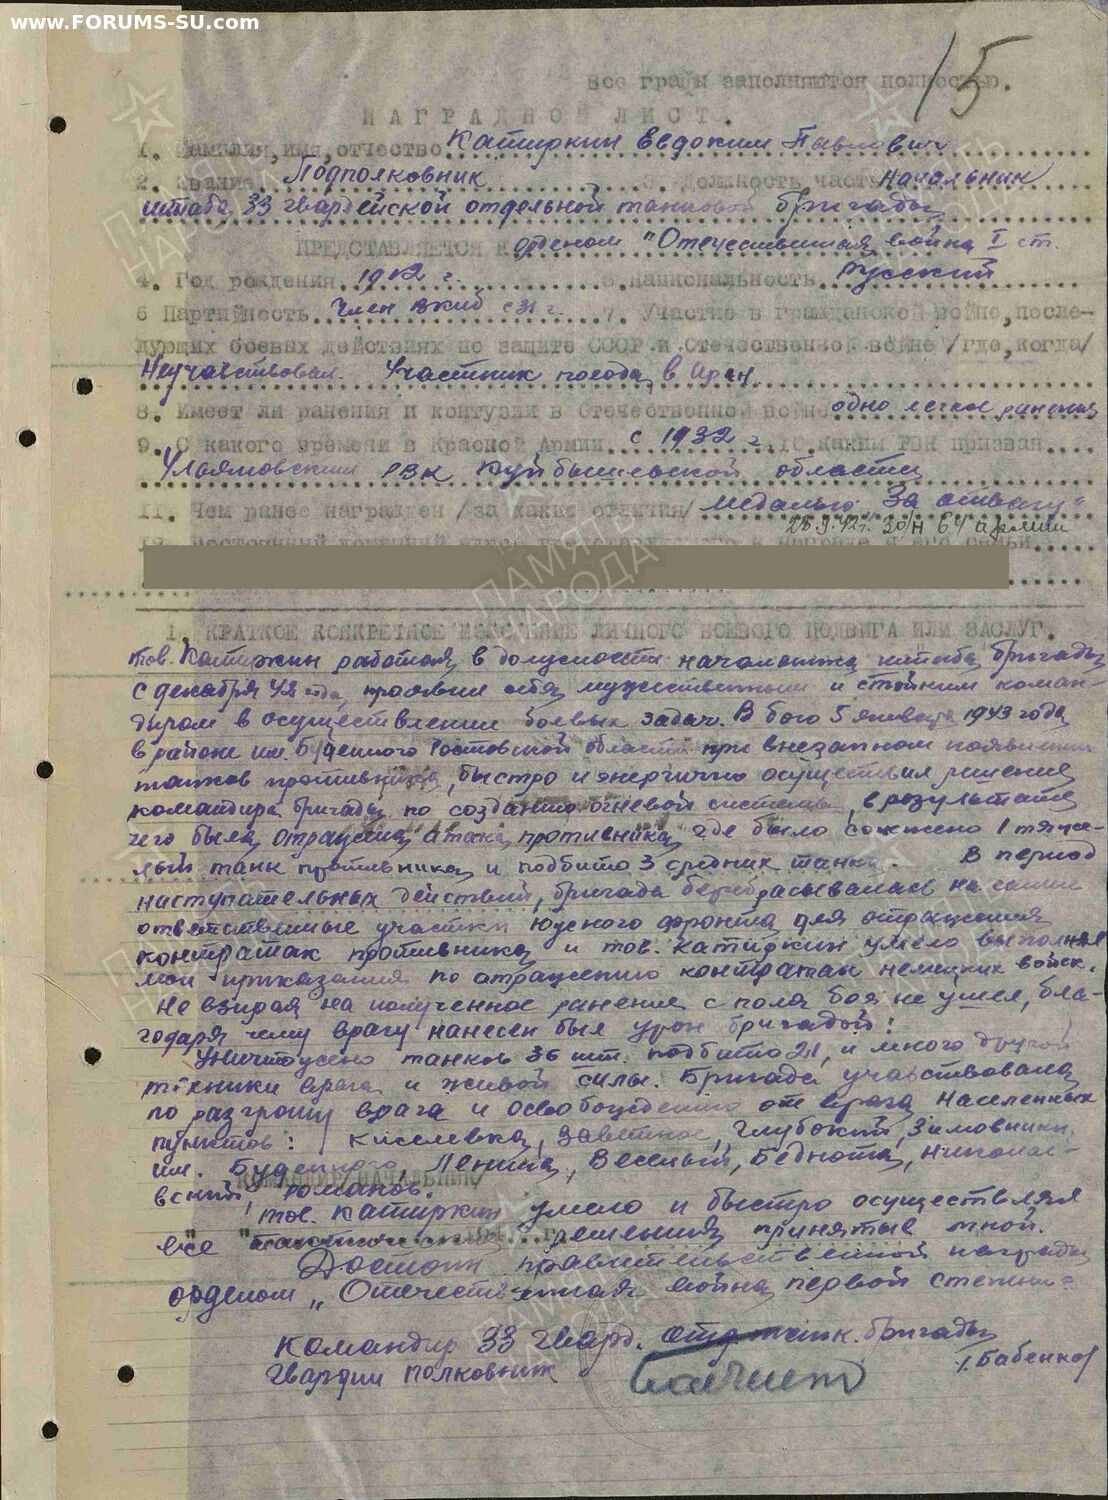 www.FORUMS-SU.com
15
Все графы заполняются полностью.
НАГРАДНОЙ ЛИСТ.
1. Фамилия, имя, отчество Катиркин Евдоким Павлович
2. Звание Подполковник 3. Должность часть Начальник
штаба 33 гвардейской отдельной танковой бригады
ПРЕДСТАВЛЯЕТСЯ К орденом "Отечественная война I ст.
4. Год рождения 1912 г. 5. Национальность Русский
6 Партийность Член ВКПб с 31 г. 7. Участие в гражданской войне, после-
дующих боевых действиях по защите СССР и отечественной войне /где, когда/
Неучаствовал. Участник похода в Иран.
8. Имеет ли ранения и контузии в Отечественной войне одно легкое ранения
9. С какого времени в Красной Армии с 1932 г. 10. каким РВК призван
Ульяновским РВК Куйбышевской области
11. Чем ранее награжден /за какие отличия/ медалью "За отвагу"
28.9.42г. 30/н 64 армии
12. Постоянный домашний адрес представляемого к награде и его семьи
1. КРАТКОЕ КОНКРЕТНОЕ ИЗЛОЖЕНИЕ ЛИЧНОГО БОЕВОГО ПОДВИГА ИЛИ ЗАСЛУГ.
тов. Катиркин работая в должности начальника штаба бригады
с декабря 42 года, проявил себя мужественным и стойким коман-
диром в осуществлении боевых задач. В бою 5 января 1943 года
в районе им. Буденного Ростовской области при внезапном появлении
танков противника, быстро и энергично осуществил решение
командира бригады по созданию огневой системы, в результате
чего была отражена атака противника, где было сожжено 1 тяже-
лый танк противника и подбито 3 средних танка. В период
наступательных действий, бригада перебрасывалась на самые
ответственные участки Южного фронта для отражения
контратак противника и тов. Катиркин умело выполнял
мои приказания по отражению контратак немецких войск.
Не взирая на полученное ранение с поля боя не ушел, бла-
годаря чему врагу нанесен был урон бригадой:
Уничтожено танков 36 шт. подбито 21, и много другой
техники врага и живой силы. Бригада участвовала
по разгрому врага и освобождению от врага населенных
пунктов: Киселевка, Заветное, Глубокий, Зимовники
им. Буденного, Ленина, Веселый, Беднота, Николае-
КОМАНДИР/НАЧАЛЬНИК/
вский, Романов.
тов. Катиркин умело и быстро осуществлял
все решения принятые мной.
Достоин правительственной награды
орденом "Отечественная война первой степени"
Командир 33 Гвард. отд. танк. бригады
Гвардии полковник /Бабенко/